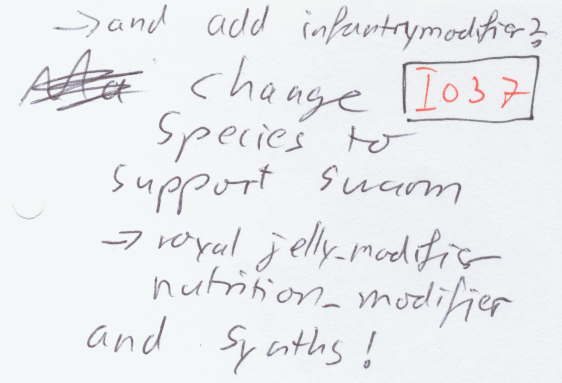 → and add infantrymodifier?
change I037
Species to
support
→ royal jelly_modifier
nutrition_modifier
and Synths!